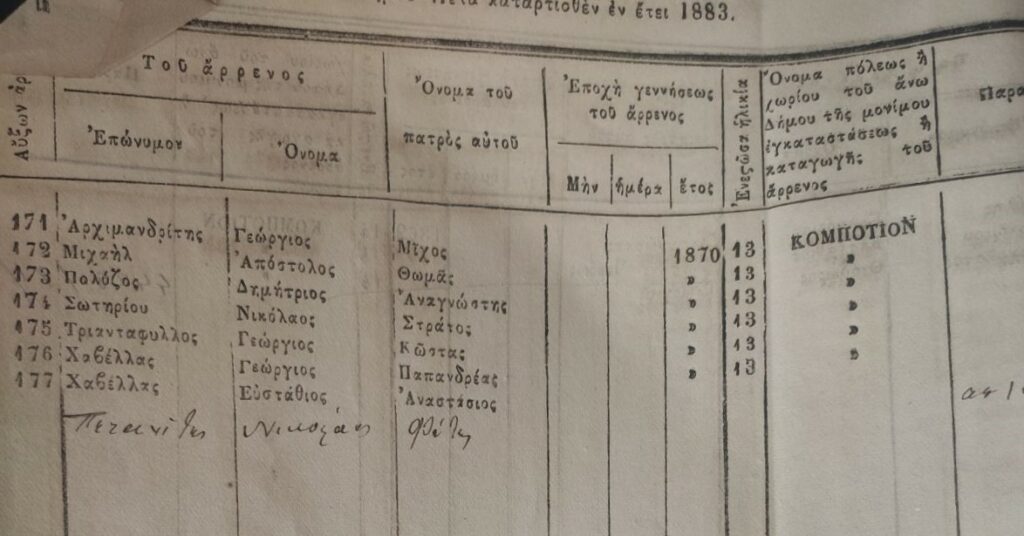 καταρτισθὲν ἐν ἔτει 1883.
Αὔξων ἀρ
Τοῦ ἄρρενος
Ἐπώνυμον
Ὄνομα
Ὄνομα τοῦ
πατρὸς αὐτοῦ
Ἐποχὴ γεννήσεως
τοῦ ἄρρενος
Μὴν ἡμέρα ἔτος
Ἐνεστῶσα ἡλικία
Ὄνομα πόλεως ἢ
χωρίου τοῦ ἄνω
Δήμου τῆς μονίμου
ἐγκαταστάσεως ἢ
καταγωγῆς τοῦ
ἄρρενος
Παρα
171 Ἀρχιμανδρίτης Γεώργιος Μῖχος 1870 13 ΚΟΜΠΟΤΙΟΝ
172 Μιχαὴλ Ἀπόστολος Θωμᾶς » 13 »
173 Πολύζος Δημήτριος Ἀναγνώστης » 13 »
174 Σωτηρίου Νικόλαος Στράτος » 13 »
175 Τριανταφυλλος Γεώργιος Κῶστας » 13 »
176 Χαβέλλας Γεώργιος Παπανδρέας » 13
177 Χαβέλλας Εὐστάθιος Ἀναστάσιος
Νικολάος Φώτης